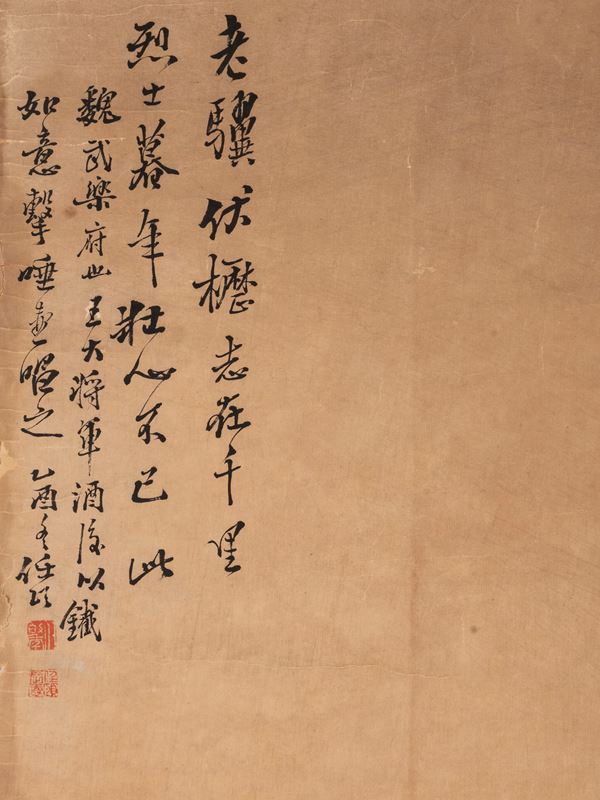 老驥伏櫪志在千里
烈士暮年壯心不已此
魏武樂府也王大將軍酒後以鐵
如意擊唾壺唱之乙酉冬任頤